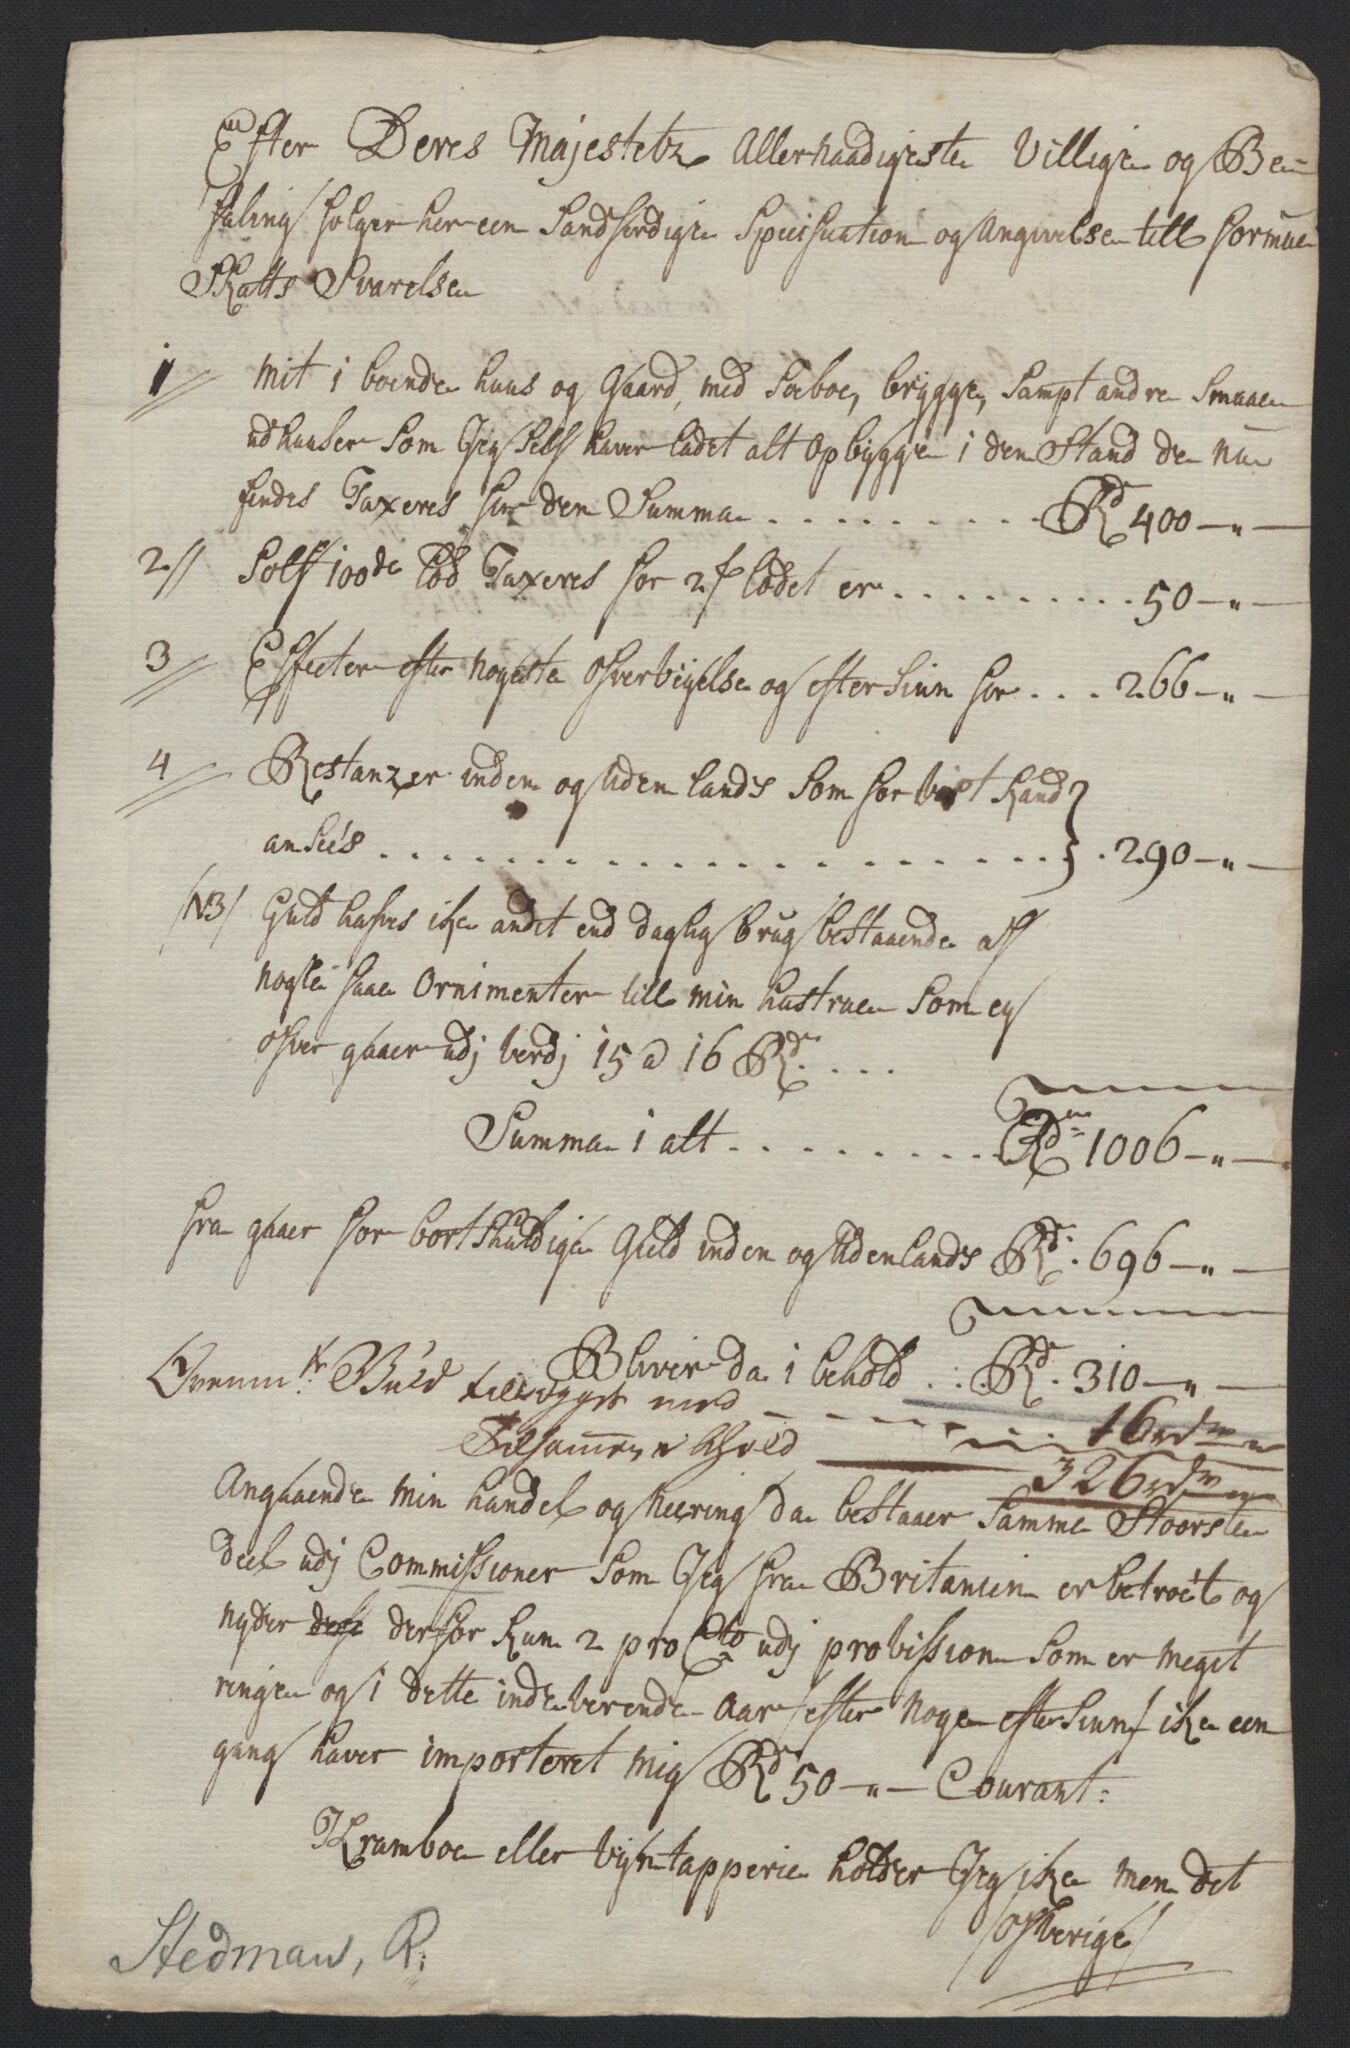 Efter Deres Majestetz Allernaadigeste Villige og Be-
faling følger her een Sandferdige Specification og Angivelse till formue
Skatts Svarelse
1// Mit i boende huus og Gaard, med Søeboe, brygge, Sampt andre Smaae
udhuuser Som Jeg Self haver ladet alt Opbygge i den Stand de nu
findes Taxeres for den Summa . . . . . . . . . . Rd 400 – „ –
2// Sølf 100de lod Taxeres for 2 f lodet er . . . . . . . . . . 50 – „ –
3// Effecter efter nogeste Ofverviyelse og efter Sinn for . . . . 266 – „ –
4// Restanzer inden og uden lands Som for vist Kand
ansees . . . . . . . . . . . . . . . . . . . . . . 290 – „ –
/NB/ Guld hafves ike andet end daglig brug bestaaende af
nogle faae Ornimenter till min hustrue Som ey
ofver gaaer udj verdj 15 a 16 Rdr. . . .
Summa i alt . . . . . . . . . . Rdr 1006 – „ –
fra gaaer for bortskuldige Giæld inden og uden lands Rd. 696 – „ –
Bliver da i behold . . . Rd. 310 – „ –
Ovenm.te Guld tillegget med – – – – 16 rdr „
Tilsammen Ahold 326 rdr „
Angaaende min handel og Næring da bestaaer Samme Stoorste
deel udj Commissioner Som Jeg fra Britanien er betroet og
nyder derfor Kun 2 pro Cto udj provission Som er meget
ringe og i dette indeverende Aar /efter nøge efter Sinn/ ike een
gang haver importeret mig Rd 50 – „ – Courant:
Kramboe eller Viyntapperie holder Jeg ike men det
/Ofverige/
Stedmans, R.